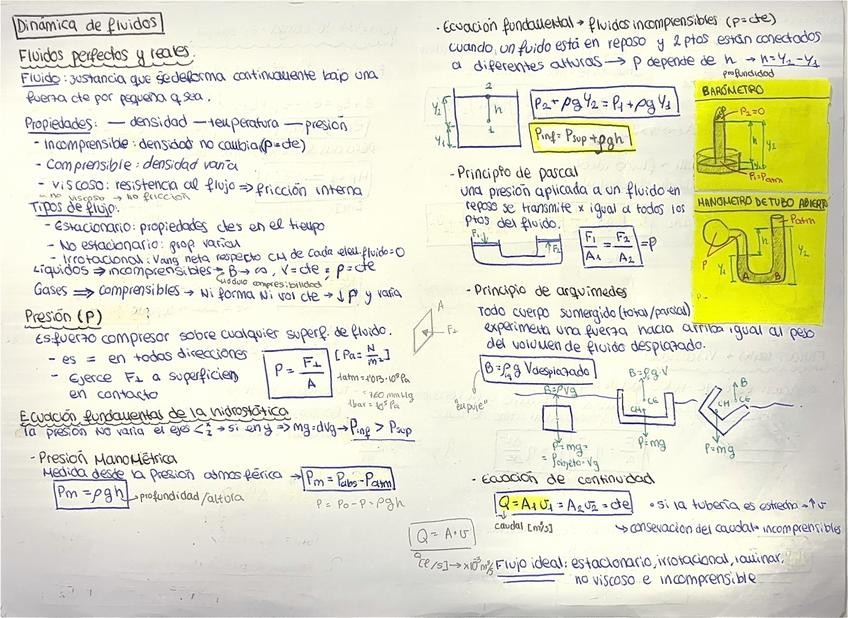 Dinámica de fluidos
Fluidos perfectos y reales.
Fluido: sustancia que se deforma continuamente bajo una
fuerza cte por pequeña q sea.
Propiedades: — densidad — temperatura — presión
- incomprensible: densidad no cambia (ρ=cte)
- comprensible: densidad varía
- viscoso: resistencia al flujo ⇒ fricción interna
no viscoso → no fricción
Tipos de flujo:
- Estacionario: propiedades ctes en el tiempo
- No estacionario: prop varían
- Irrotacional: Vang neta respecto CM de cada elem fluido=0
Líquidos ⇒ incomprensibles → B → ∞, V=cte = ρ=cte
módulo compresibilidad
Gases ⇒ comprensibles → Ni forma Ni vol cte → ↓ρ y varía
Presión (P)
Esfuerzo compresor sobre cualquier superf. de fluido.
- es = en todas direcciones
- Ejerce F⊥ a superficies
en contacto
P = F⊥/A
[Pa = N/m²]
1atm = 1'013·10⁵ Pa
= 760 mmHg
1bar = 10⁵ Pa
A
F⊥
Ecuación fundamental de la hidrostática
la presión no varía el ejes < x z → si en y → mg=dVg → Pinf > Psup
- Presión Manométrica
Medida desde la presión atmosférica → Pm = Pabs - Patm
Pm = ρgh → profundidad/altura
P = P0 - P = ρgh
· Ecuación fundamental → fluidos incomprensibles (ρ=cte)
cuando un fluido está en reposo y 2 ptos están conectados
a diferentes alturas → P depende de h → h=Y2-Y1
profundidad
2
h
1
Y2
Y1
P2 + ρgY2 = P1 + ρgY1
Pinf = Psup + ρgh
BARÓMETRO
P2=0
h
Y2
Y1
P1=Patm
- Principio de pascal
una presión aplicada a un fluido en
reposo se transmite x igual a todos los
ptos del fluido.
F1
F2
F1/A1 = F2/A2 = P
MANÓMETRO DE TUBO ABIERTO
Patm
h
Y1
Y2
P
A
B
- Principio de arquímedes
Todo cuerpo sumergido (total/parcial)
experimenta una fuerza hacia arriba igual al peso
del volumen de fluido desplazado.
B = ρfl g Vdesplazado
"empuje"
B=ρVg
P=mg=
Pobjeto·Vg
B=ρg·V
CE
CM
P=mg
B
CE
CM
P=mg
- Ecuación de continuidad
Q = A1v1 = A2v2 = cte
caudal [m³/s]
• si la tubería es estrecha → ↑v
↳ conservación del caudal → incomprensibles
Q = A·v
Q
[ℓ/s] → x10⁻³ m³/s
Flujo ideal: estacionario, irrotacional, laminar,
no viscoso e incomprensible